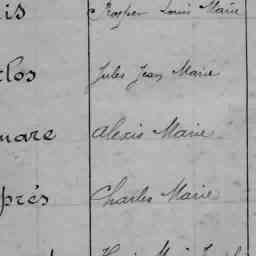 is Prosper Louis Marie
clos Jules Jean Marie
mare Alexis Marie
près Charles Marie